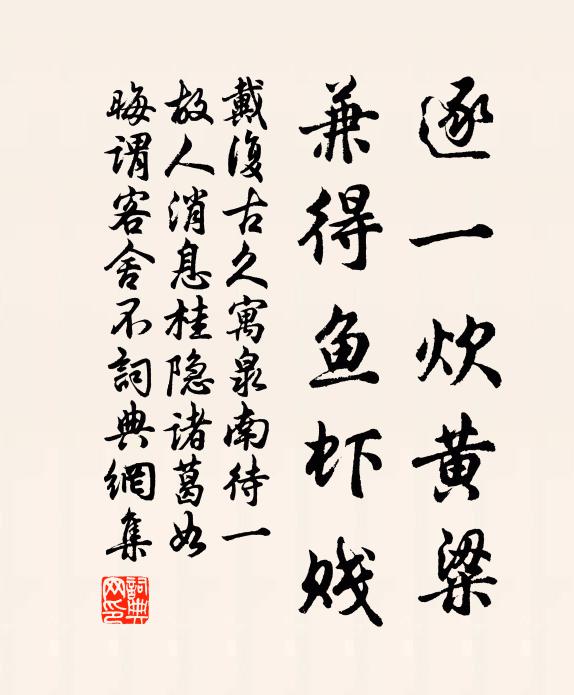 逐一炊黄粱
兼得鱼虾贱
戴復古久寓泉南待一
故人消息桂隐诸葛如
晦谓客舍不詞典網集
詞典网印